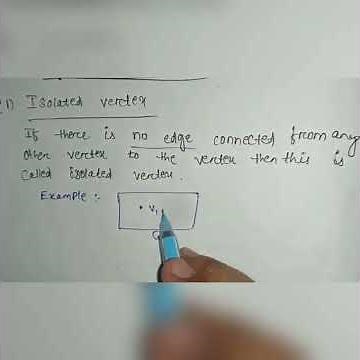 1) Isolated vertex
If there is no edge connected from any
other vertex to the vertex then this is
called Isolated vertex.
Example :-
V1
G